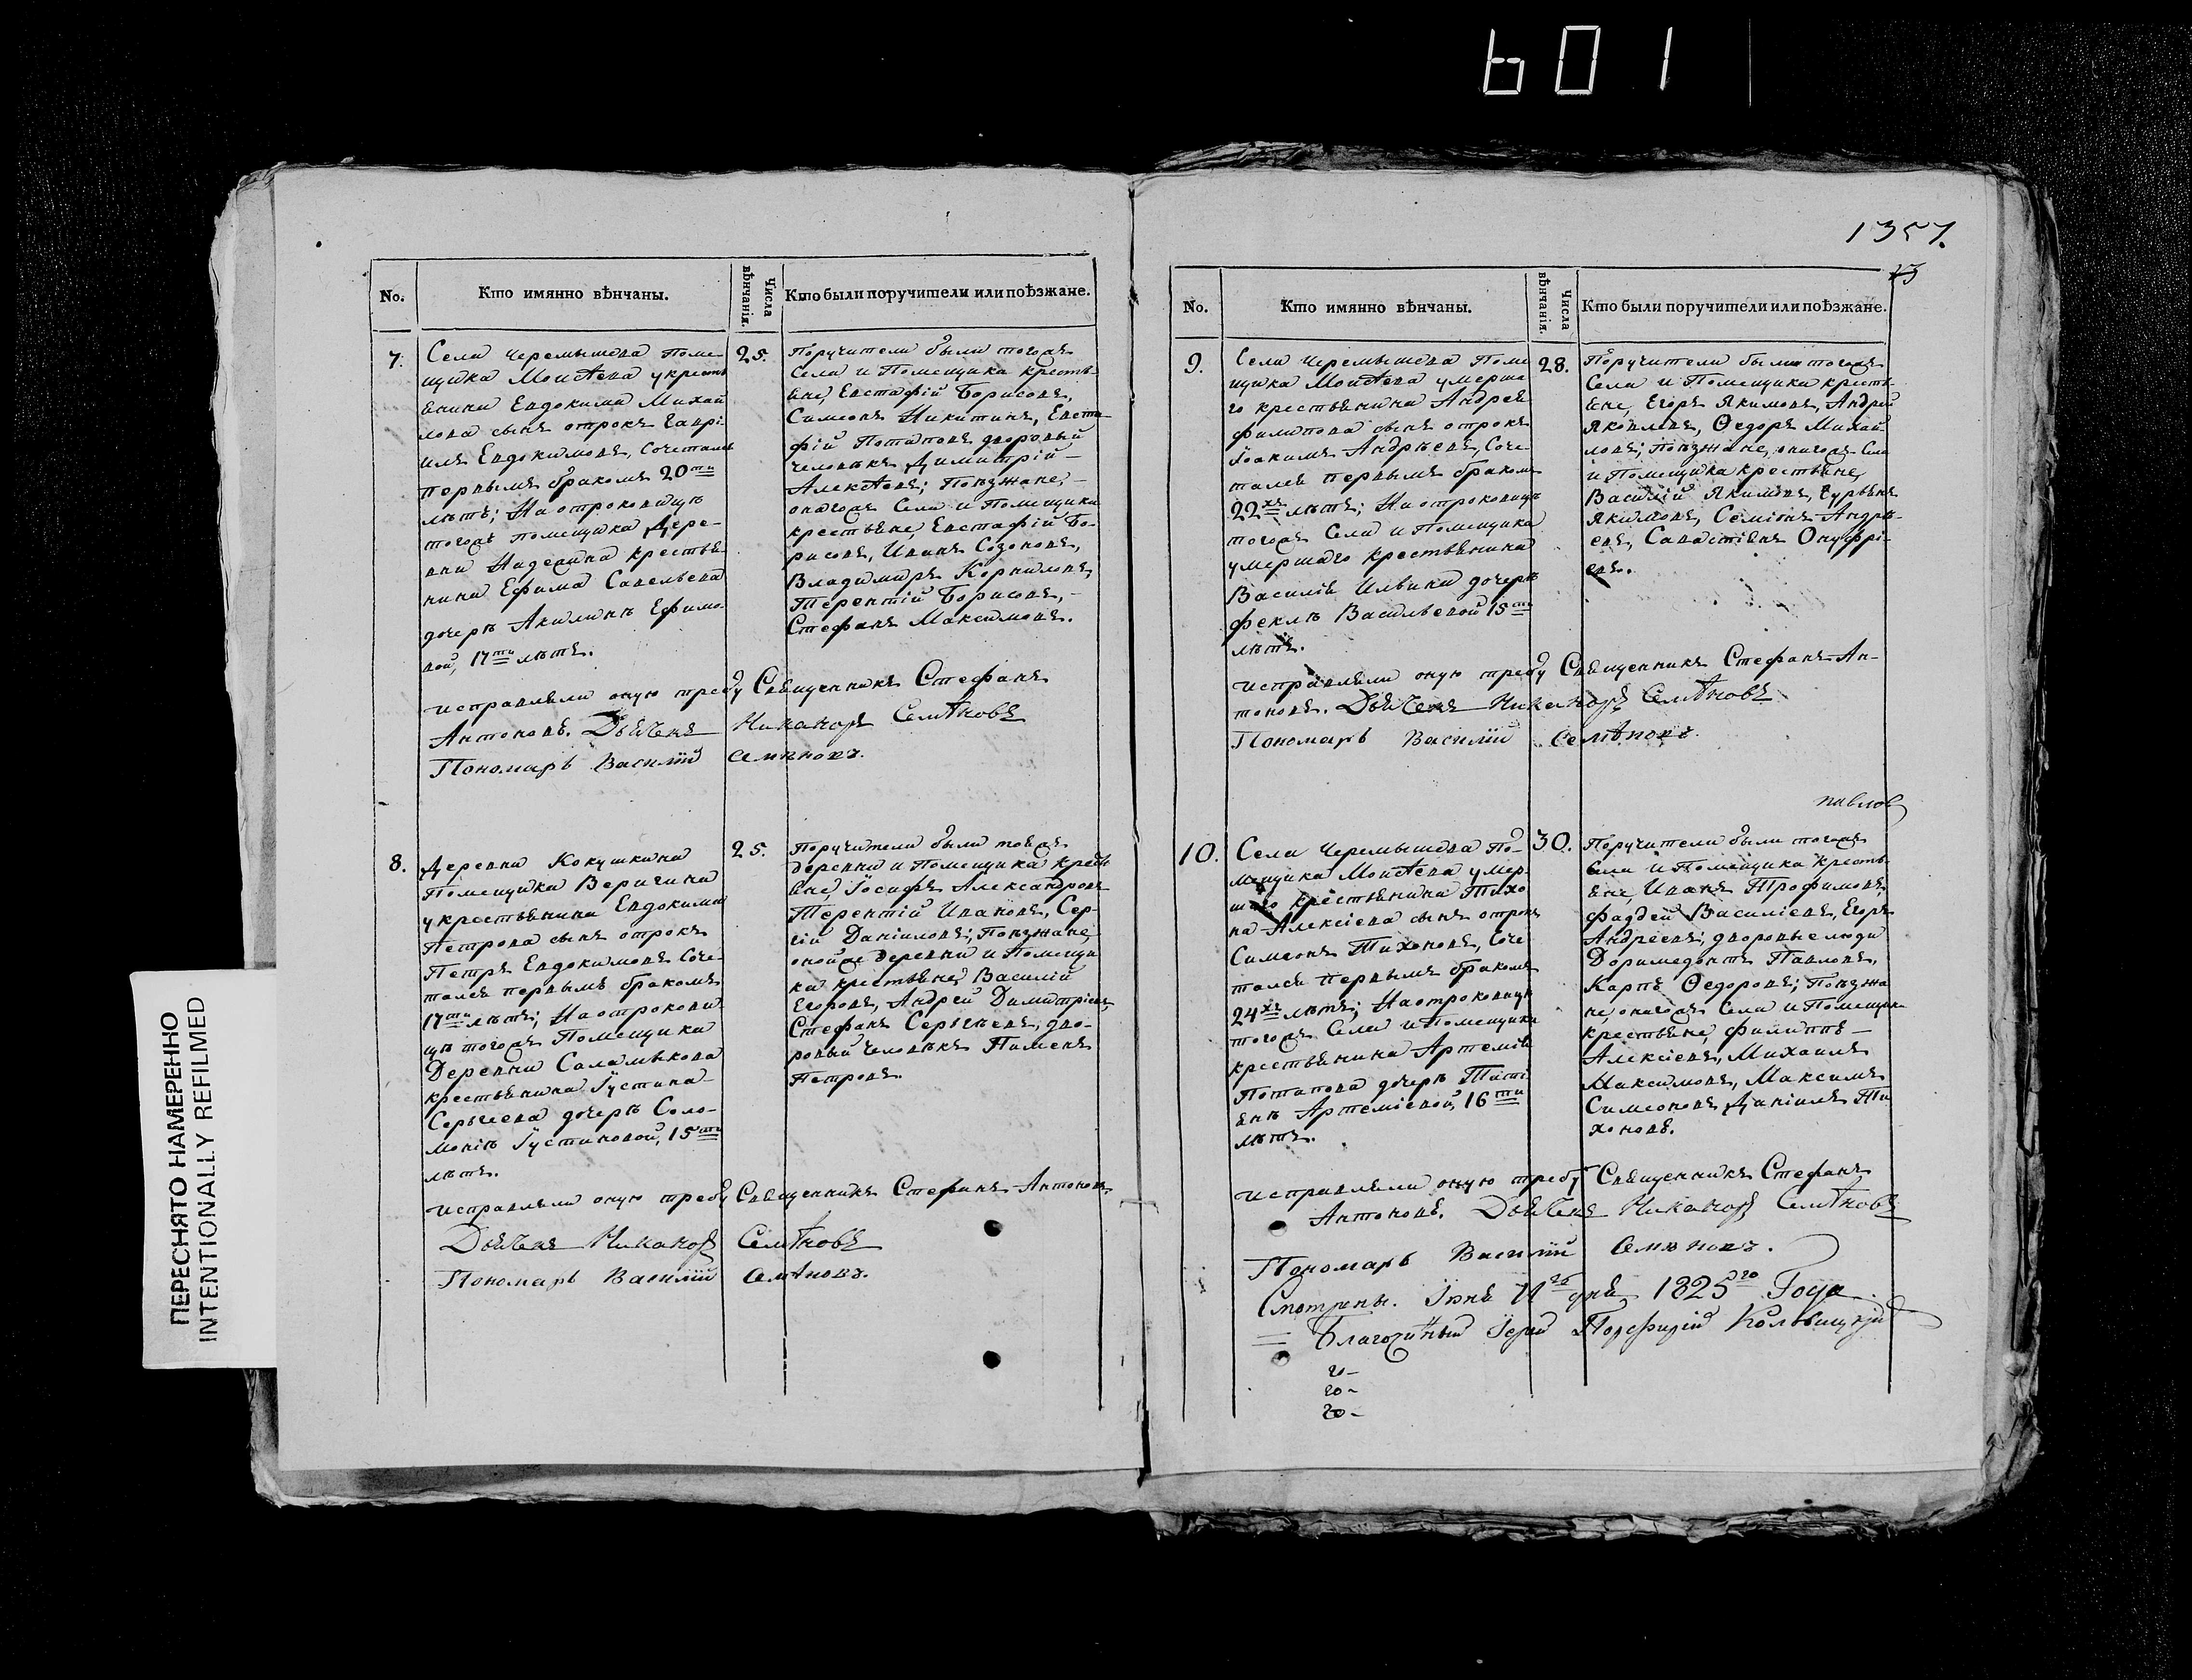 601
ПЕРЕСНЯТО НАМЕРЕННО
INTENTIONALLY REFILMED
No.
Кто имянно вѣнчаны.
Числа вѣнчанія.
Кто были поручители или поѣзжане.
7.
Села Черемышева Поме-
щика Моисѣева у кресть
янина Евдокима Михай
лова сынъ отрокъ Гаврі-
илъ Евдокимовъ, Сочетался
первымъ бракомъ 20ти
лѣтъ; На отроковицѣ
тогожъ помещика Дере-
вни крестья
нина Ефима Савельева
дочерѣ Акилинѣ Ефимо-
вой, 17ти лѣтъ.
25.
Поручители были тогожъ
Села и Помещика кресть-
яне, Евстафій Борисовъ,
Симеонъ Никитинъ, Евста-
фій Потаповъ дворовый
человѣкъ Димитрій
Алексѣевъ; Поѣзжане,
онагожъ Села и Помещика
крестьяне, Евстафій Бо-
рисовъ, Иванъ Созоновъ,
Владимиръ Корниловъ,
Терентій Борисовъ,
Стефанъ Максимовъ.
исправляли оную требу Священникъ Стефанъ
Антоновъ. Дьяченъ Никаноръ Семѣновъ
Пономарь Василій Семѣновъ.
8.
Деревни Кокушкина
Помещика Веригина
у крестьянина Евдокима
Петрова сынъ отрокъ
Петръ Евдокимовъ Соче-
тался первымъ бракомъ
17ти лѣтъ; На отрокови-
цѣ тогожъ Помещика
Деревни Саламыкова
крестьянина Іустина
Сергѣева дочерѣ Соло-
моніѣ Іустиновой, 15ти
лѣтъ.
25.
Поручители были тояжъ
деревни и Помещика кресть
яне, Іосифъ Александровъ
Терентій Ивановъ, Сер-
гій Даніиловъ; Поѣзжане,
онойже деревни и Помещи
ка крестьяне, Василій
Егоровъ, Андрей Димитріевъ,
Стефанъ Сергѣевъ, дво-
ровый человѣкъ Пименъ
Петровъ.
исправляли оную требу Священникъ Стефанъ Антоновъ.
Дьяченъ Никаноръ Семѣновъ
Пономарь Василій Семѣновъ.
1357.
No.
Кто имянно вѣнчаны.
Числа вѣнчанія.
Кто были поручители или поѣзжане.
9.
Села Черемышева Поме
щика Моисѣева умерша
го крестьянина Андрея
Филипова сынъ отрокъ
Іоакимъ Андрѣевъ, Соче-
тался первымъ бракомъ
22хъ лѣтъ; На отроковицѣ
тогожъ Села и Помещика
умершаго крестьянина
Василія Ильина дочерѣ
Феклѣ Васильевой 15ти
лѣтъ.
28.
Поручители были тогожъ
Села и Помещика кресть-
яне, Егоръ Якимовъ, Андрей
Яковлевъ, Ѳедоръ Михай-
ловъ; поѣзжане, онагожъ Села
и Помещика крестьяне,
Василій Якимовъ, Гурьянъ
Якимовъ, Семіонъ Андрѣ-
евъ, Савастіянъ Онуфрі-
евъ.
исправляли оную требу Священникъ Стефанъ Ан-
тоновъ. Дьяченъ Никаноръ Семѣновъ
Пономарь Василій Семѣновъ.
павлов
10.
Села Черемышева По-
мещика Моисѣева умер-
шаго крестьянина Тихо
на Алексіева сынъ отрокъ
Симеонъ Тихоновъ, Соче
тался первымъ бракомъ
24хъ лѣтъ; На отроковицѣ
тогожъ Села и Помещика
крестьянина Артемія
Потапова дочерѣ Таті
янѣ Артеміевой, 16ти
лѣтъ.
30.
Поручители были тогожъ
Села и Помещика кресть-
яне, Иванъ Трофимовъ,
Фаддей Василіевъ, Егоръ
Андреевъ; дворовые люди
Доримедонтъ Павловъ,
Карпъ Ѳедоровъ; Поѣзжа
не, онагожъ Села и Помещика
крестьяне, Филиппъ
Алексіевъ, Михаилъ
Максимовъ, Максимъ
Симеоновъ, Даніилъ Ти
хоновъ.
исправляли оную требу Священникъ Стефанъ
Антоновъ. Дьяченъ Никаноръ Семѣновъ
Пономарь Василій Семѣновъ.
Смотрены. Іюня дня 1825го Года
Благочинный Іерей Порфирій
20-
20-
20-